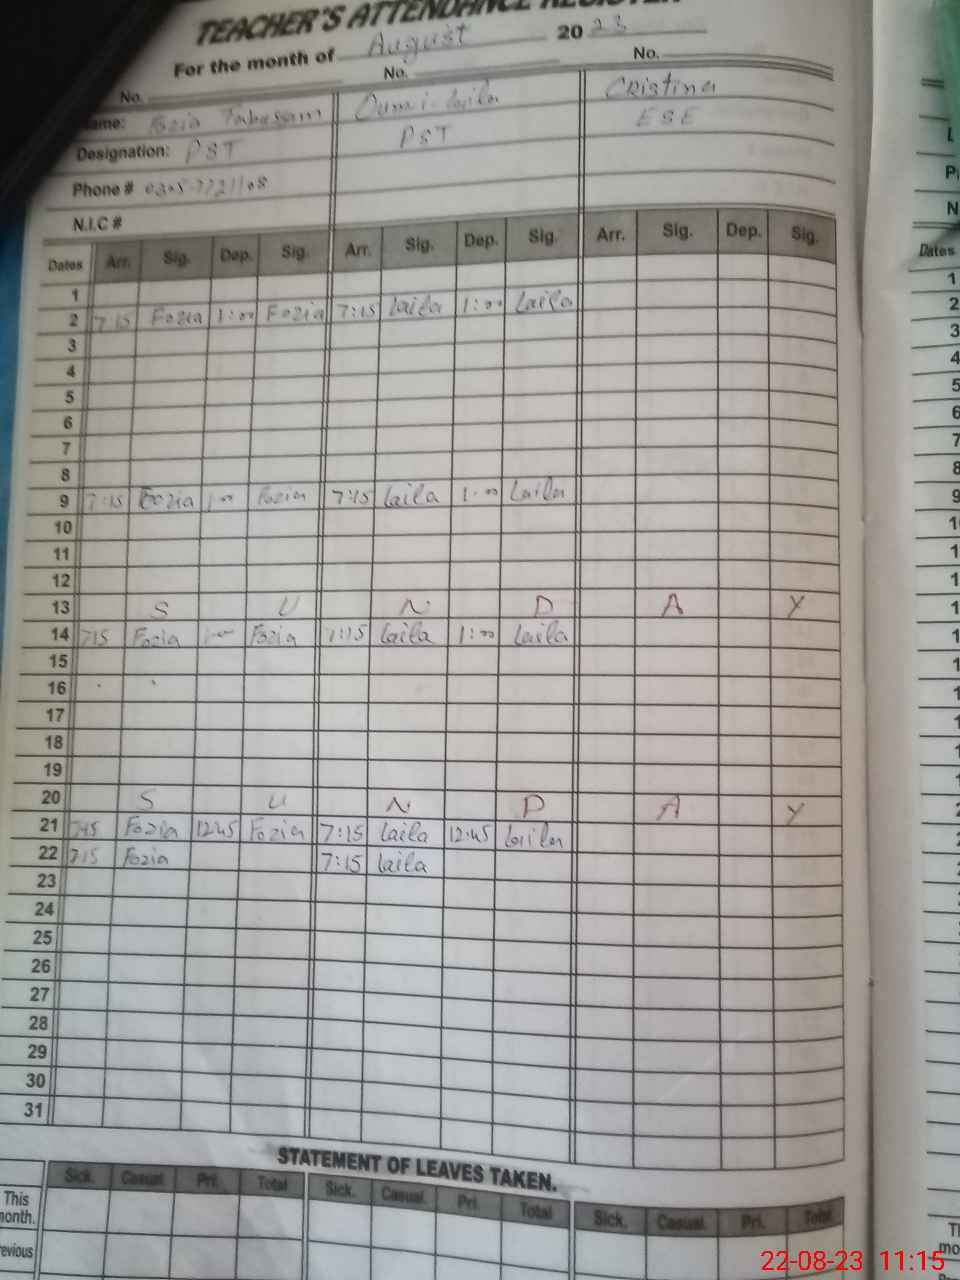 TEACHER'S ATTENDANCE REGISTER
For the month of August 2023
No. No. No.
Name: Fozia Tabassam Laila Cristina
Designation: PST PST ESE
Phone #
N.I.C #
Dates Arr. Sig. Dep. Sig. Arr. Sig. Dep. Sig. Arr. Sig. Dep. Sig.
1
2 7:15 Fozia 1:00 Fozia 7:15 Laila 1:00 Laila
3
4
5
6
7
8
9 7:15 Fozia 1:00 Fozia 7:15 Laila 1:00 Laila
10
11
12
13 S U N D A Y
14 7:15 Fozia 1:00 Fozia 7:15 Laila 1:00 Laila
15
16
17
18
19
20 S U N D A Y
21 Fozia 12:45 Fozia 7:15 Laila 12:45 Laila
22 7:15 Fozia 7:15 Laila
23
24
25
26
27
28
29
30
31
STATEMENT OF LEAVES TAKEN.
Sick. Casual. Pri. Total Sick. Casual. Pri. Total Sick. Casual. Pri. Total
This
month.
Previous
22-08-23 11:15